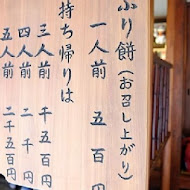 ぶり餅(お召し上がり)
一人前 五百円
持ち帰りは
三人前 千五百円
四人前 二千円
五人前 二千五百円